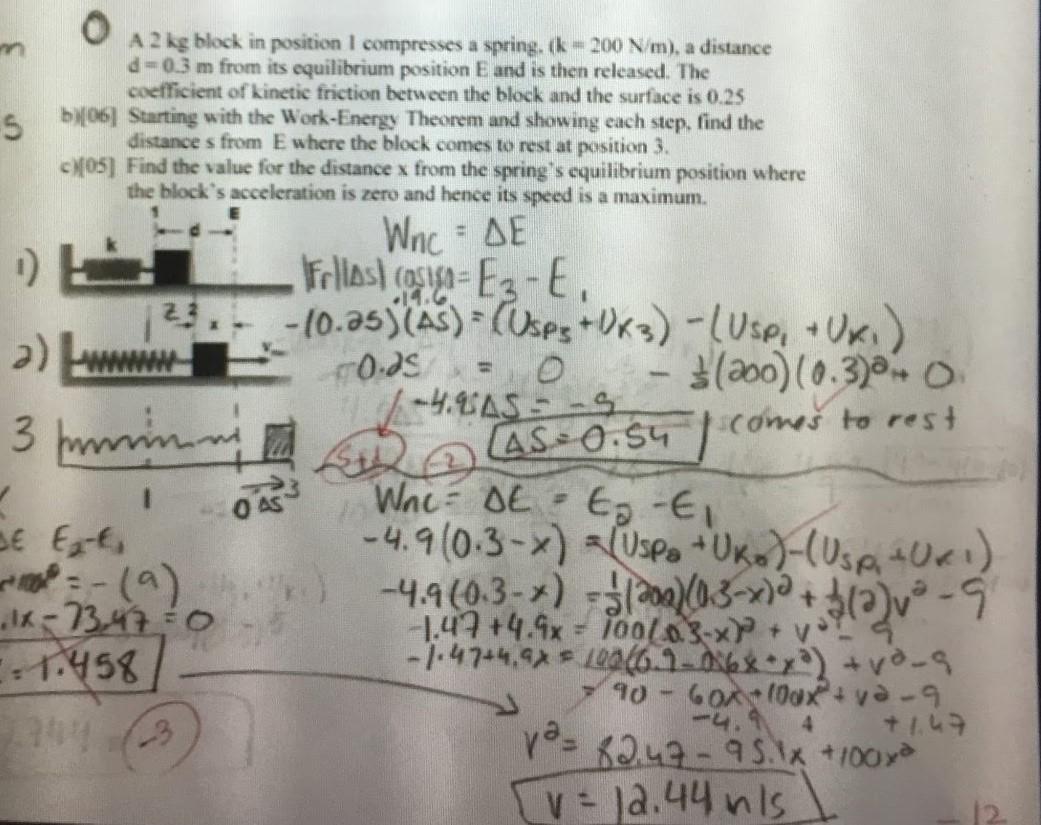 A 2 kg block in position 1 compresses a spring, (k = 200 N/m), a distance
d = 0.3 m from its equilibrium position E and is then released. The
coefficient of kinetic friction between the block and the surface is 0.25
b)[06] Starting with the Work-Energy Theorem and showing each step, find the
distance s from E where the block comes to rest at position 3.
c)[05] Find the value for the distance x from the spring's equilibrium position where
the block's acceleration is zero and hence its speed is a maximum.
1 d E
k
1)
Wnc = ΔE
|Fr||Δs| cos180 = E3 - E1
·19.6
-(0.25)(ΔS) = (Usp3 + UK3) - (Usp1 + UK1)
2)
x
-0.25 = 0 - ½(200)(0.3)² + 0
-4.9ΔS = -9
ΔS = 0.54
comes to rest
3
S+d
-2
1 0 ΔS 3
Wnc = ΔE = E2 - E1
-4.9(0.3-x) = (Usp2 + UK2) - (Usp1 + UK1)
-4.9(0.3-x) = ½(200)(0.3-x)² + ½(2)v² - 9
-1.47 + 4.9x = 100(0.3-x)² + v² - 9
-1.47+4.9x = 100(0.9 - 0.6x + x²) + v² - 9
= 90 - 60x + 100x² + v² - 9
-4.9 + 1.47
v² = 82.47 - 95.1x + 100x²
v = 12.44 m/s
E2-E1
= -(9)
.1x - 73.47 = 0
= 1.458
-3
-12